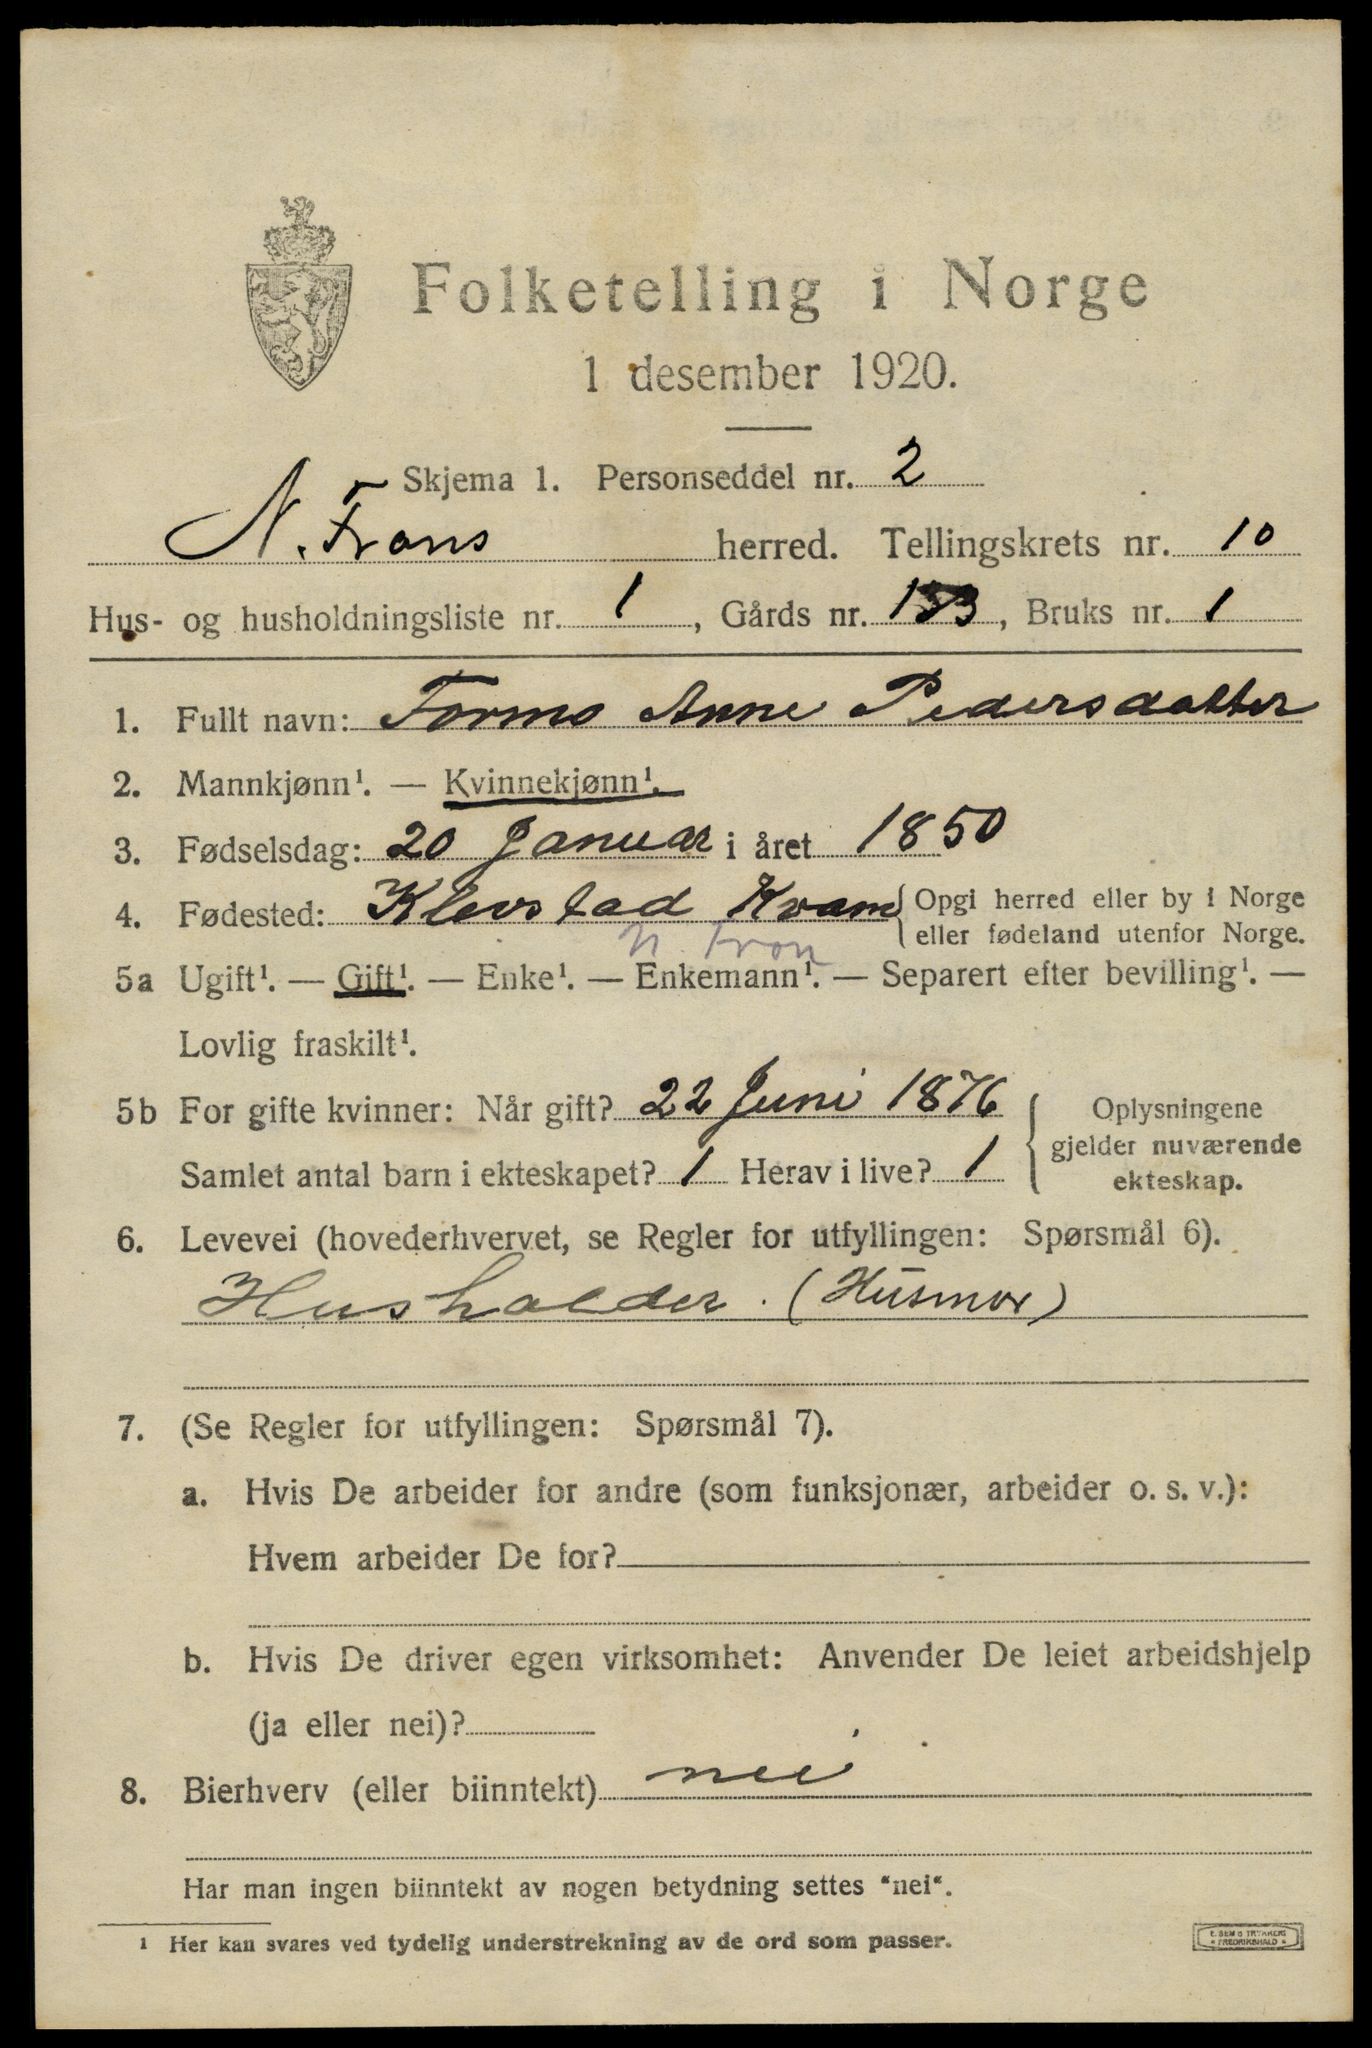 Folketelling i Norge
1 desember 1920.
Skjema 1. Personseddel nr. 2
N. Frons herred. Tellingskrets nr. 10
Hus- og husholdningsliste nr. 1, Gårds nr. 133, Bruks nr. 1
1. Fullt navn: Formo Anne Pedersdatter
2. Mannkjønn¹. — Kvinnekjønn¹.
3. Fødselsdag: 20 Januar i året 1850
4. Fødested: Klevstad Kvam { Opgi herred eller by i Norge
eller fødeland utenfor Norge.
N. Fron
5a Ugift¹. — Gift¹. — Enke¹. — Enkemann¹. — Separert efter bevilling¹. —
Lovlig fraskilt¹.
5b For gifte kvinner: Når gift? 22 Juni 1876 { Oplysningene
gjelder nuværende
Samlet antal barn i ekteskapet? 1 Herav i live? 1
ekteskap.
6. Levevei (hovederhvervet, se Regler for utfyllingen: Spørsmål 6).
Husholder. (Husmor)
7. (Se Regler for utfyllingen: Spørsmål 7).
a. Hvis De arbeider for andre (som funksjonær, arbeider o. s. v.):
Hvem arbeider De for?
b. Hvis De driver egen virksomhet: Anvender De leiet arbeidshjelp
(ja eller nei)?
8. Bierhverv (eller biinntekt) nei
Har man ingen biinntekt av nogen betydning settes "nei".
¹ Her kan svares ved tydelig understrekning av de ord som passer.
E. SEM'S TRYKKERI
FREDRIKSHALD